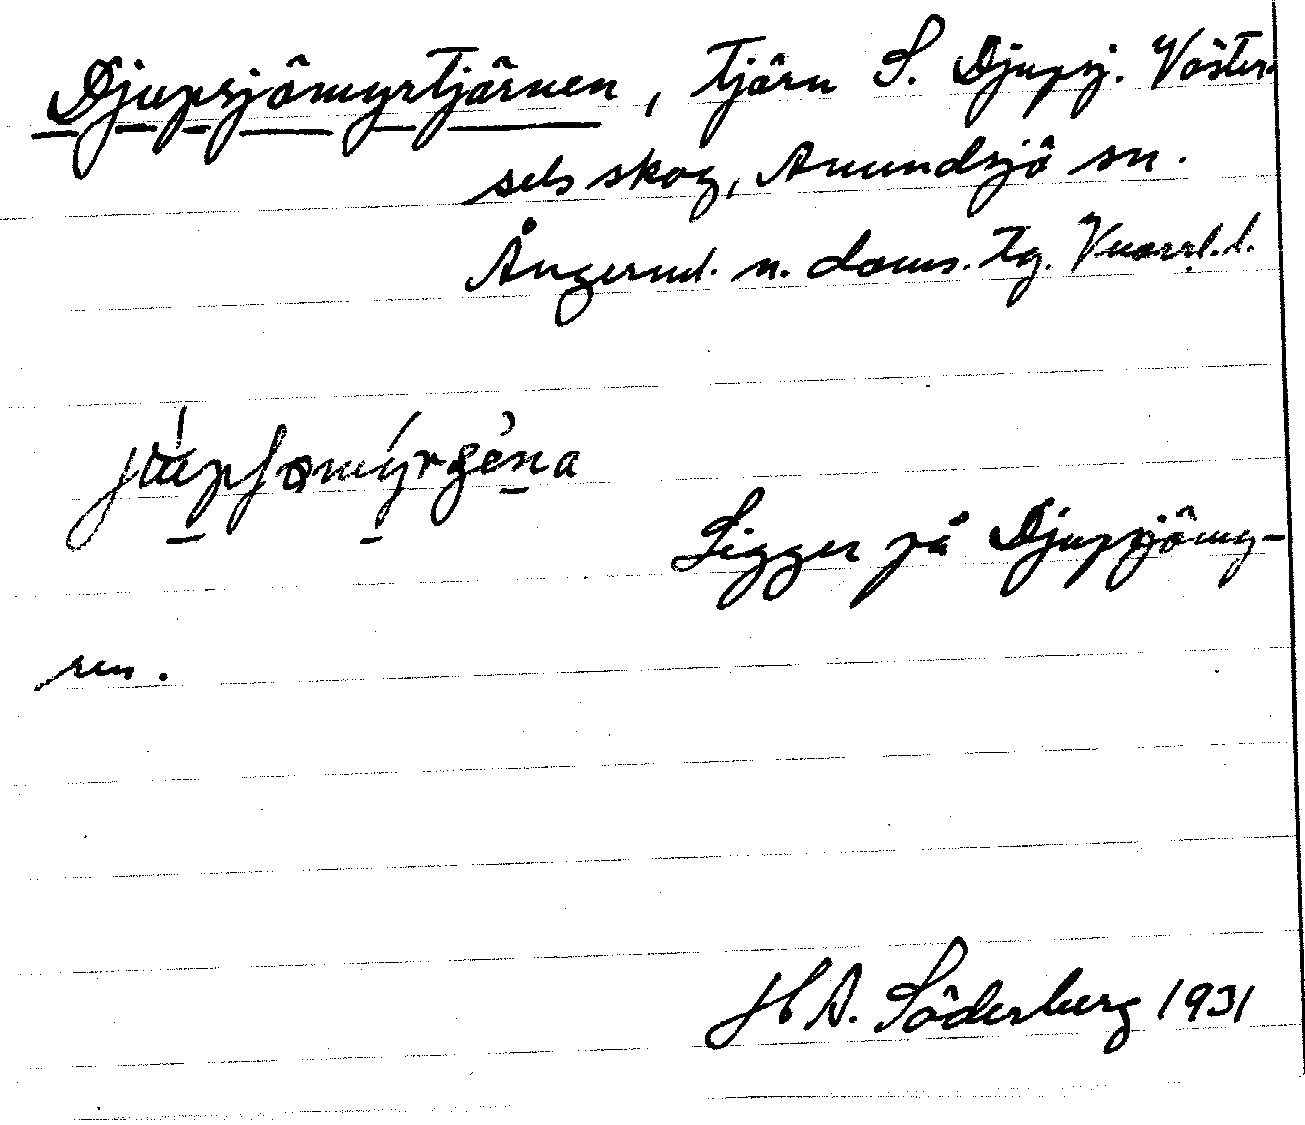 Djupsjömyrtjärnen, tjärn S. Djupsj. Väster-
sels skog, Anundsjö sn.
Ångerml. n. doms. tg. Vnorrl. l.
Ligger på Djupsjömy-
ren.
H A. Söderberg 1931